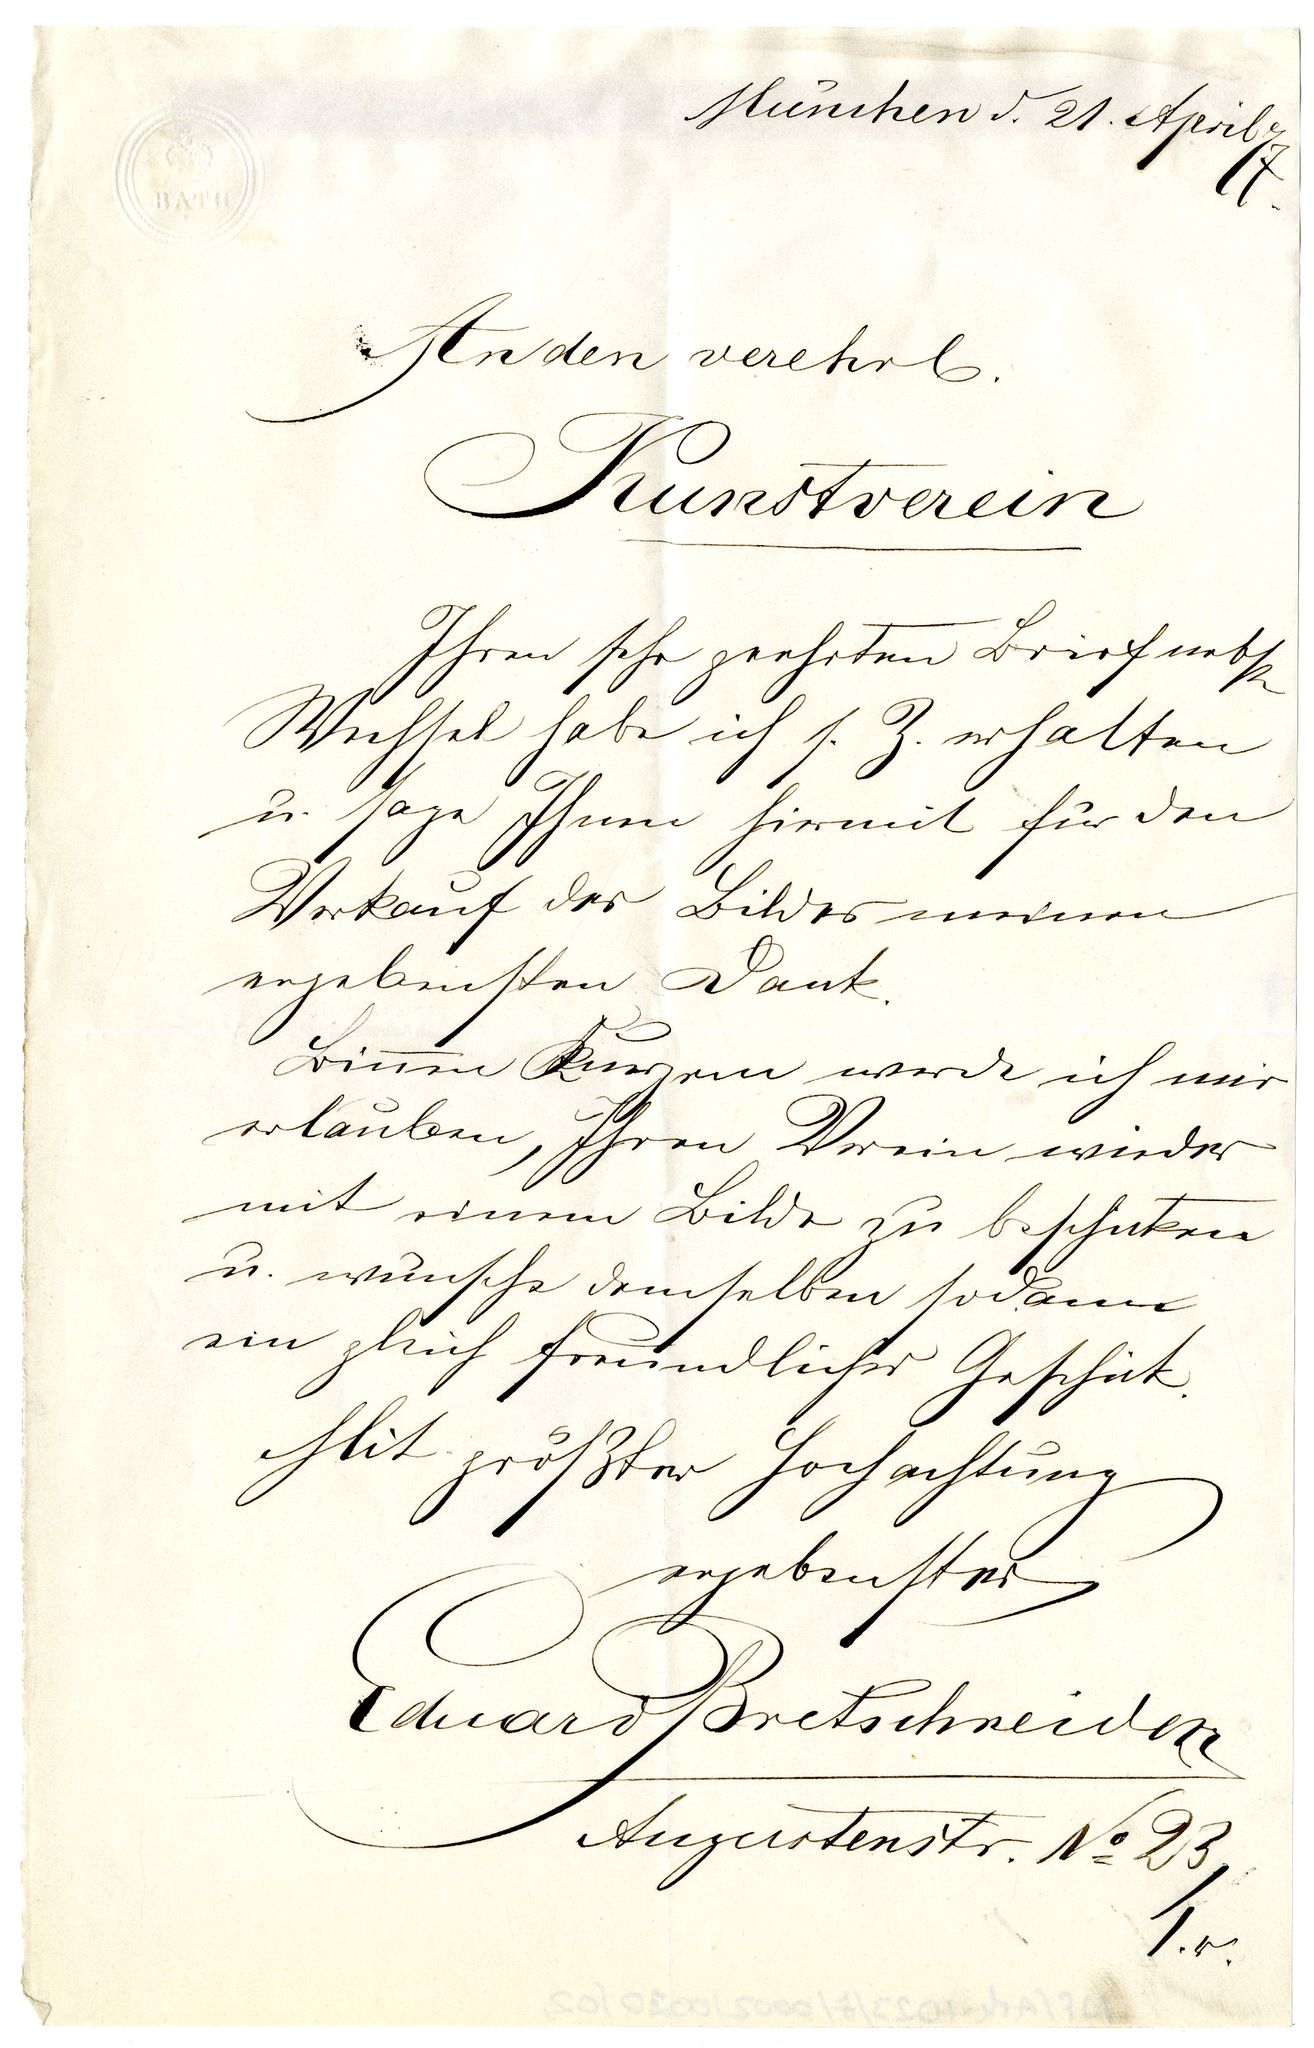 BATH
München d. 21. April 77.
An den verehrl.
Kunstverein
Ihren sehr geehrten Brief nebst
Wechsel habe ich s. Z. erhalten
u. sage Ihnen hiermit für den
Verkauf des Bildes meinen
ergebensten Dank.
Binnen Kurzem werde ich mir
erlauben, Ihren Verein wieder
mit einem Bilde zu beschicken
u. wünsche demselben sodann
ein gleich freundliches Geschick.
Mit größter Hochachtung
ergebenster
Eduard Bretschneider
Augustenstr. No 23/
1. r.